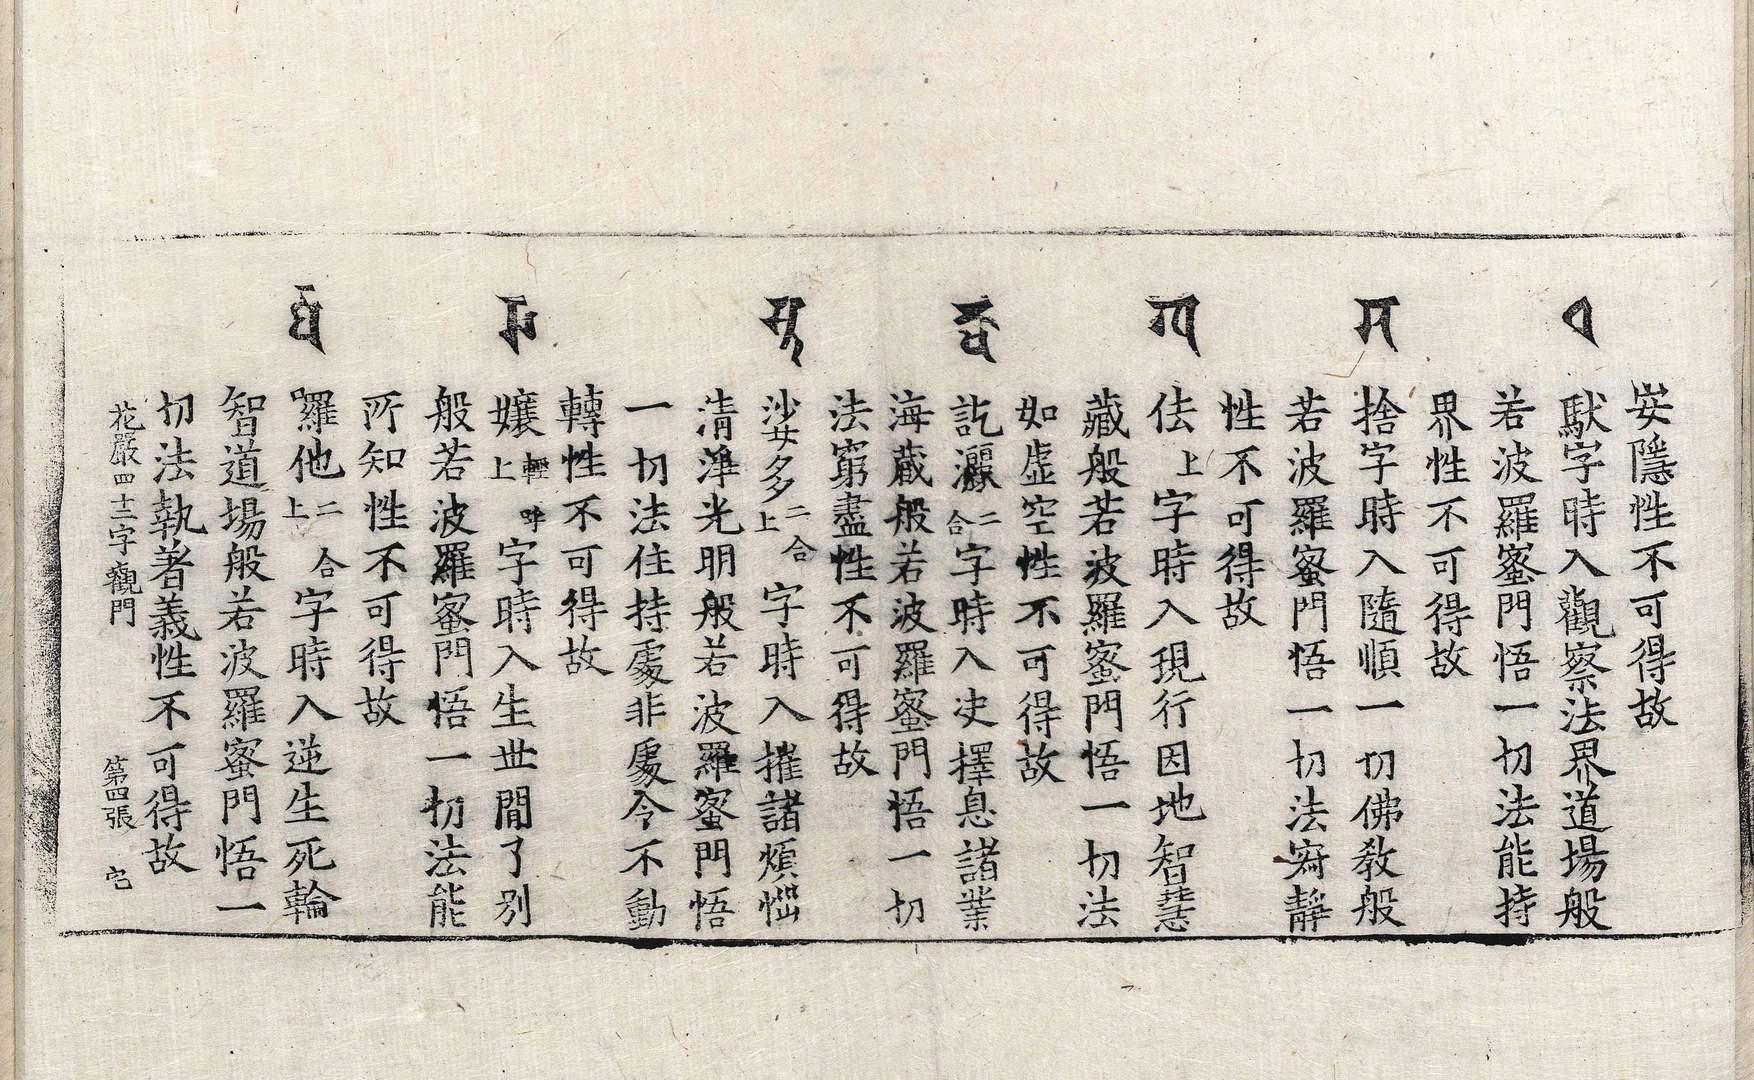 安隱性不可得故
𑖠 馱字時入觀察法界道場般
若波羅蜜門悟一切法能持
界性不可得故
𑖫 捨字時入隨順一切佛教般
若波羅蜜門悟一切法寂靜
性不可得故
𑖏 佉上字時入現行因地智慧
藏般若波羅蜜門悟一切法
如虛空性不可得故
𑖎𑖿𑖬 訖灑二合字時入决擇息諸業
海藏般若波羅蜜門悟一切
法窮盡性不可得故
𑖭𑖿𑖝 娑多二合上字時入摧諸煩惱
清淨光明般若波羅蜜門悟
一切法住持處非處令不動
轉性不可得故
𑖗 孃輕呼上字時入生世間了别
般若波羅蜜門悟一切法能
所知性不可得故
𑖨𑖿𑖞 囉他二合上字時入逆生死輪
智道場般若波羅蜜門悟一
切法執著義性不可得故
花嚴四十二字觀門 第四張 㝎